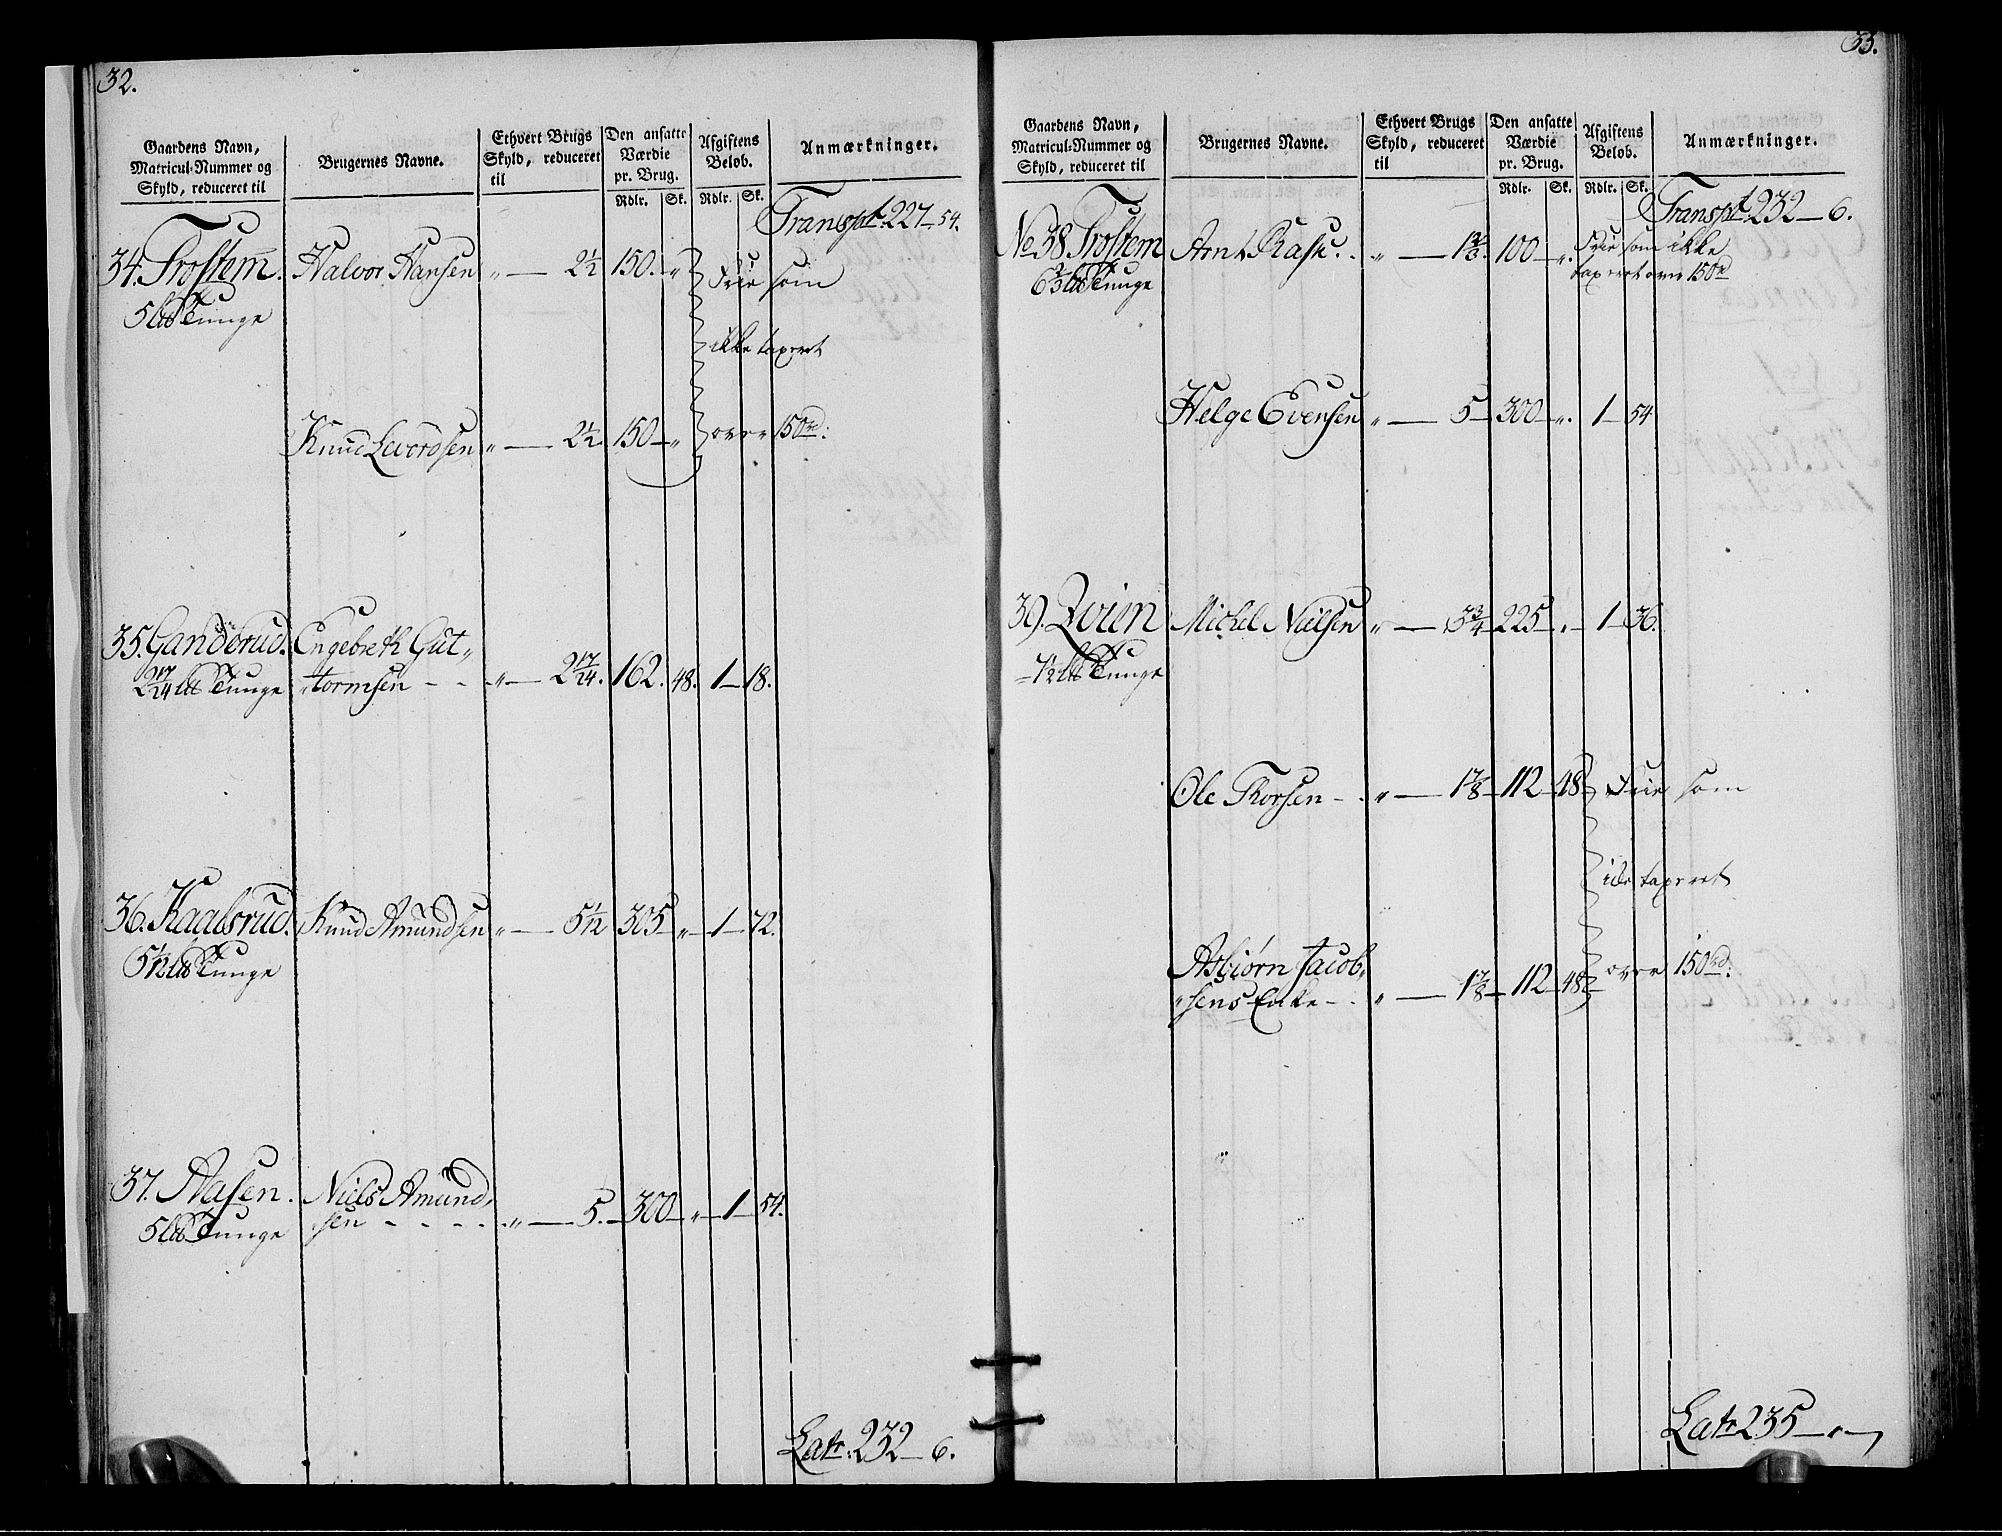 32.
Gaardens Navn, Matricul-Nummer og Skyld, reduceret til | Brugernes Navne. | Ethvert Brugs Skyld, reduceret til | Den ansatte Værdie pr. Brug. | Afgiftens Beløb. | Anmærkninger.
Rdlr. | Sk. | Rdlr. | Sk.
Transpt. 227 — 54.
34. Trostem. Halvor Hansen „ — 2½ 150. — „ Frie som
5 lb Tunge
ikke taxeret
Knud Levordsen „ — 2½. 150 — „ over 150 rd:
35. Ganderud. Engebreth Gut„
2 17/24 lb Tunge „tormsen - - „ — 2 17/24. 162. 48. 1 — 18.
36. Kaalsrud. Knud Amundsen „ — 5 1/12 305 — „ — 1 — 72.
5 1/12 lb Tunge
37. Aasen. Niels Amund„
5 lb Tunge sen - - - - „ — 5. — 300 — „ — 1 — 54.
Latr. 232 — 6.
33.
Gaardens Navn, Matricul-Nummer og Skyld, reduceret til | Brugernes Navne. | Ethvert Brugs Skyld, reduceret til | Den ansatte Værdie pr. Brug. | Afgiftens Beløb. | Anmærkninger.
Rdlr. | Sk. | Rdlr. | Sk.
Transpt. 232 — 6.
No 38 Trostem Arnt Rask. . „ — 1⅔. 100 — „. Frie som ikke
6⅔ lb Tunge taxeret over 150 rd
Helge Evensen „ — 5 — 300 — „. 1 — 54
39. Qvien Michel Nielsen „ — 3¾ 225 — „ — 1 — 36.
7½ lb Tunge
Ole Thorsen - . „ — 1⅞ 112 — 48 Frie som
ike taxeret
Asbiørn Jacob„
„sens Enke - . „ — 1⅞ — 112 — 48 over 150 rd:
Latr 235 — „ —